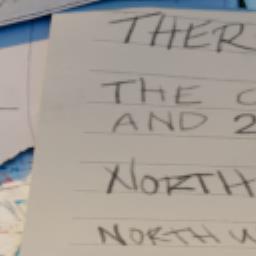 THER
THE C
AND 2
NORTH
NORTH W